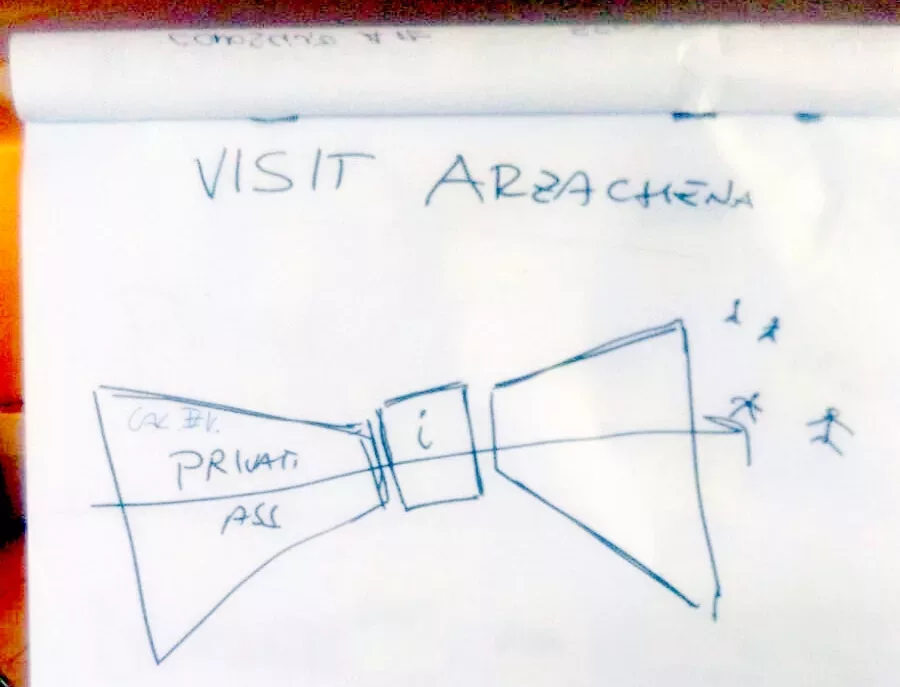 VISIT ARZACHENA
i
PRIVATI
ASS